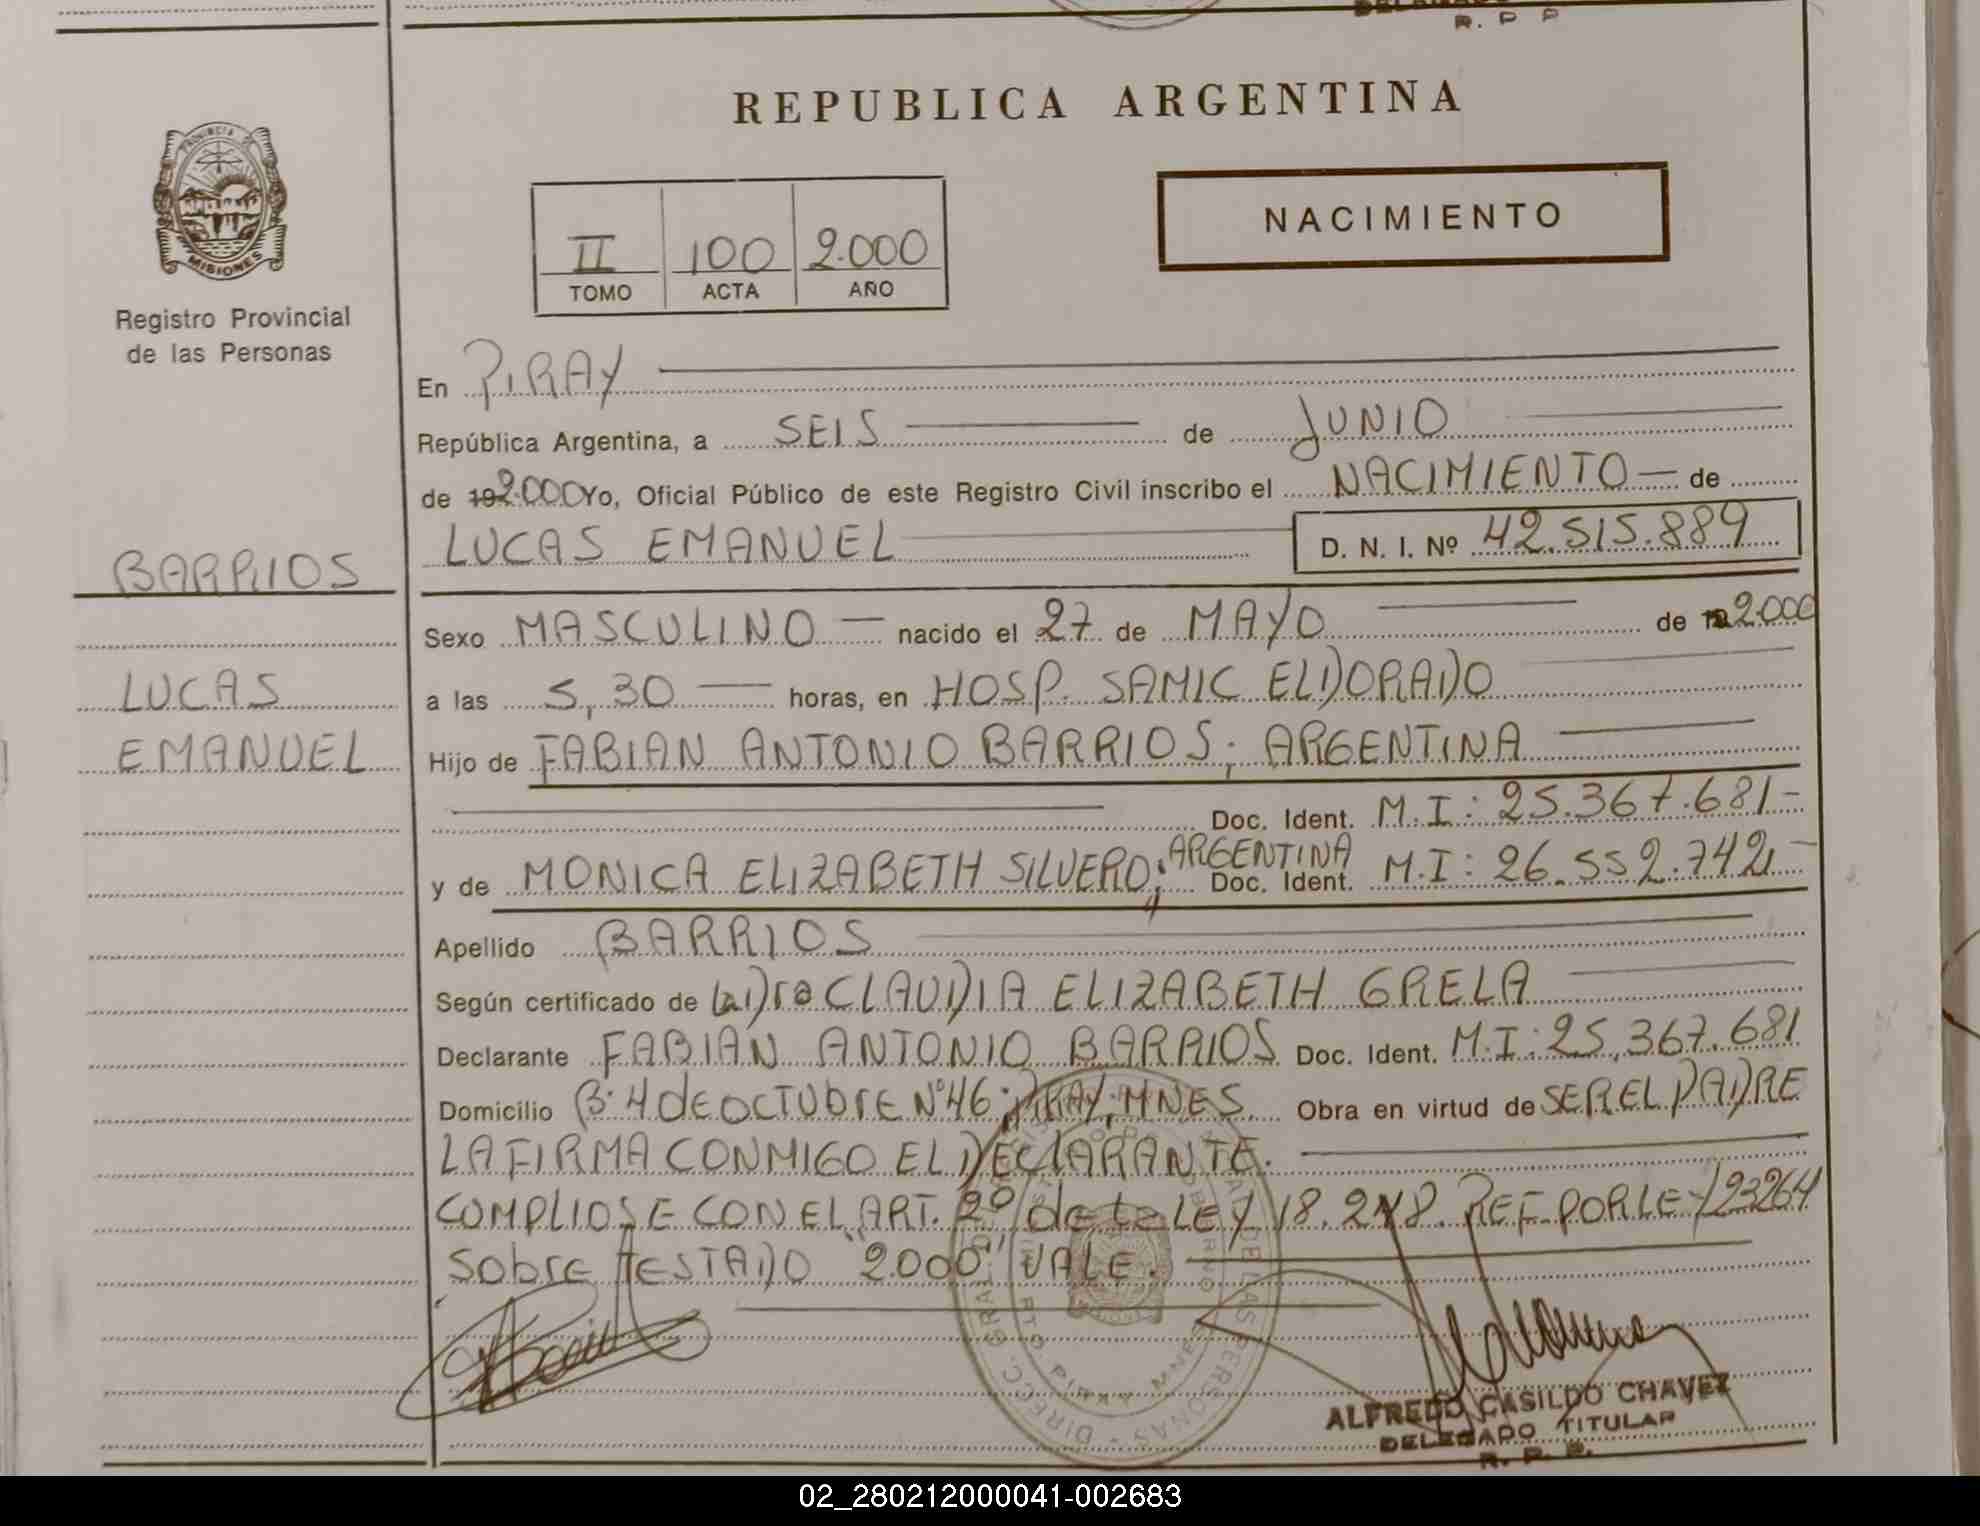 R. P P
REPUBLICA ARGENTINA
PROVINCIA DE
MISIONES
Registro Provincial
de las Personas
II 100 2.000
TOMO ACTA AÑO
NACIMIENTO
En PIRAY
República Argentina, a SEIS de JUNIO
de 192.000 Yo, Oficial Público de este Registro Civil inscribo el NACIMIENTO de
LUCAS EMANUEL D. N. I. Nº 42.515.889
BARRIOS
LUCAS
EMANUEL
Sexo MASCULINO nacido el 27 de MAYO de 19 2.000
a las 5,30 horas, en HOSP. SAMIC ELDORADO
Hijo de FABIAN ANTONIO BARRIOS; ARGENTINA
Doc. Ident. M.I: 25.367.681-
y de MONICA ELIZABETH SILVERO; ARGENTINA Doc. Ident. M.I: 26.552.742-
Apellido BARRIOS
Según certificado de La Dra CLAUDIA ELIZABETH GRELA
Declarante FABIAN ANTONIO BARRIOS Doc. Ident. M.I: 25.367.681
Domicilio B: 4 de OCTUBRE Nº 46; PIRAY, MNES. Obra en virtud de SER EL PADRE
LA FIRMA CONMIGO EL DECLARANTE.
COMPLIOSE CON EL ART. 2º de la LEY 18.248. REF. POR LEY 23264
Sobre TESTADO "2000" VALE.
ALFREDO CASILDO CHAVEZ
DELEGADO TITULAR
R. P. P.
02_280212000041-002683